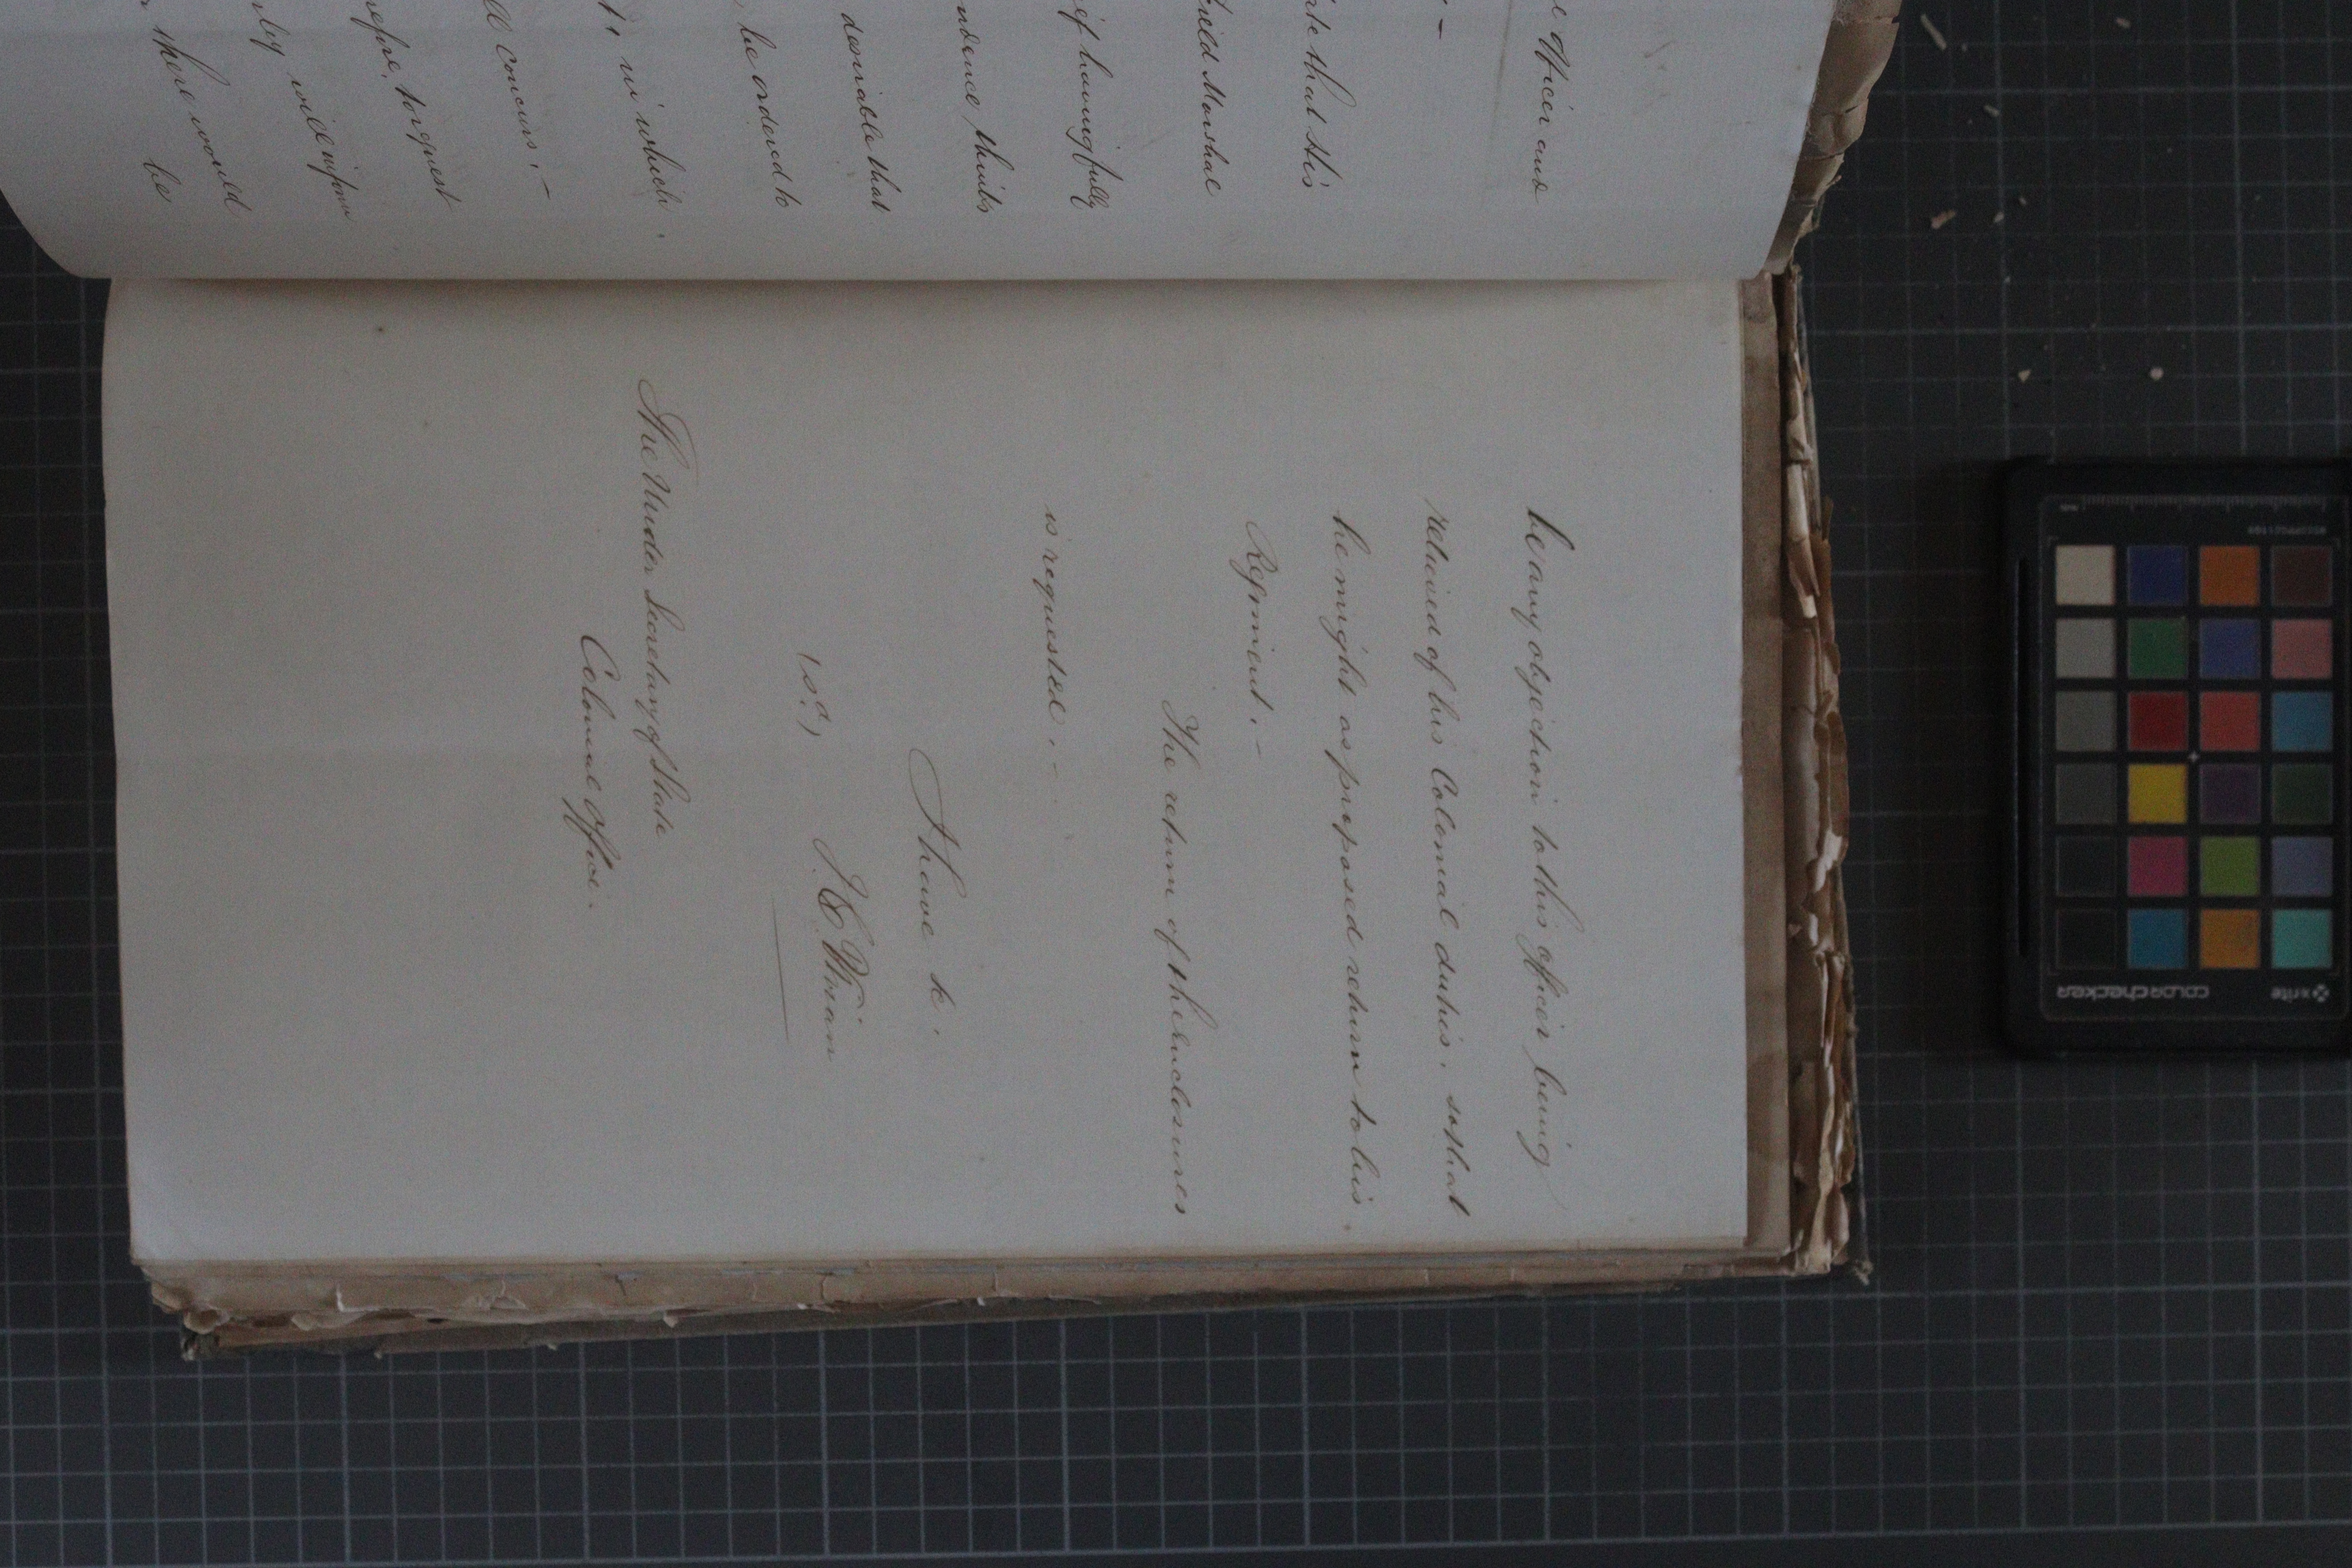 e Officer and
ate that His
Field Marshal
of having fully
ndence thinks
desirable that
be ordered to
in which
ll concurs. —
refore, to request
will inform
there would
be
be any objection to this officer being
relieved of his Colonial duties, so that
he might as proposed return to his
Regiment. —
The return of the enclosures
is requested. —
I have &c.
(sd.)
The Under Secretary of State
Colonial Office.
x-rite
colorchecker